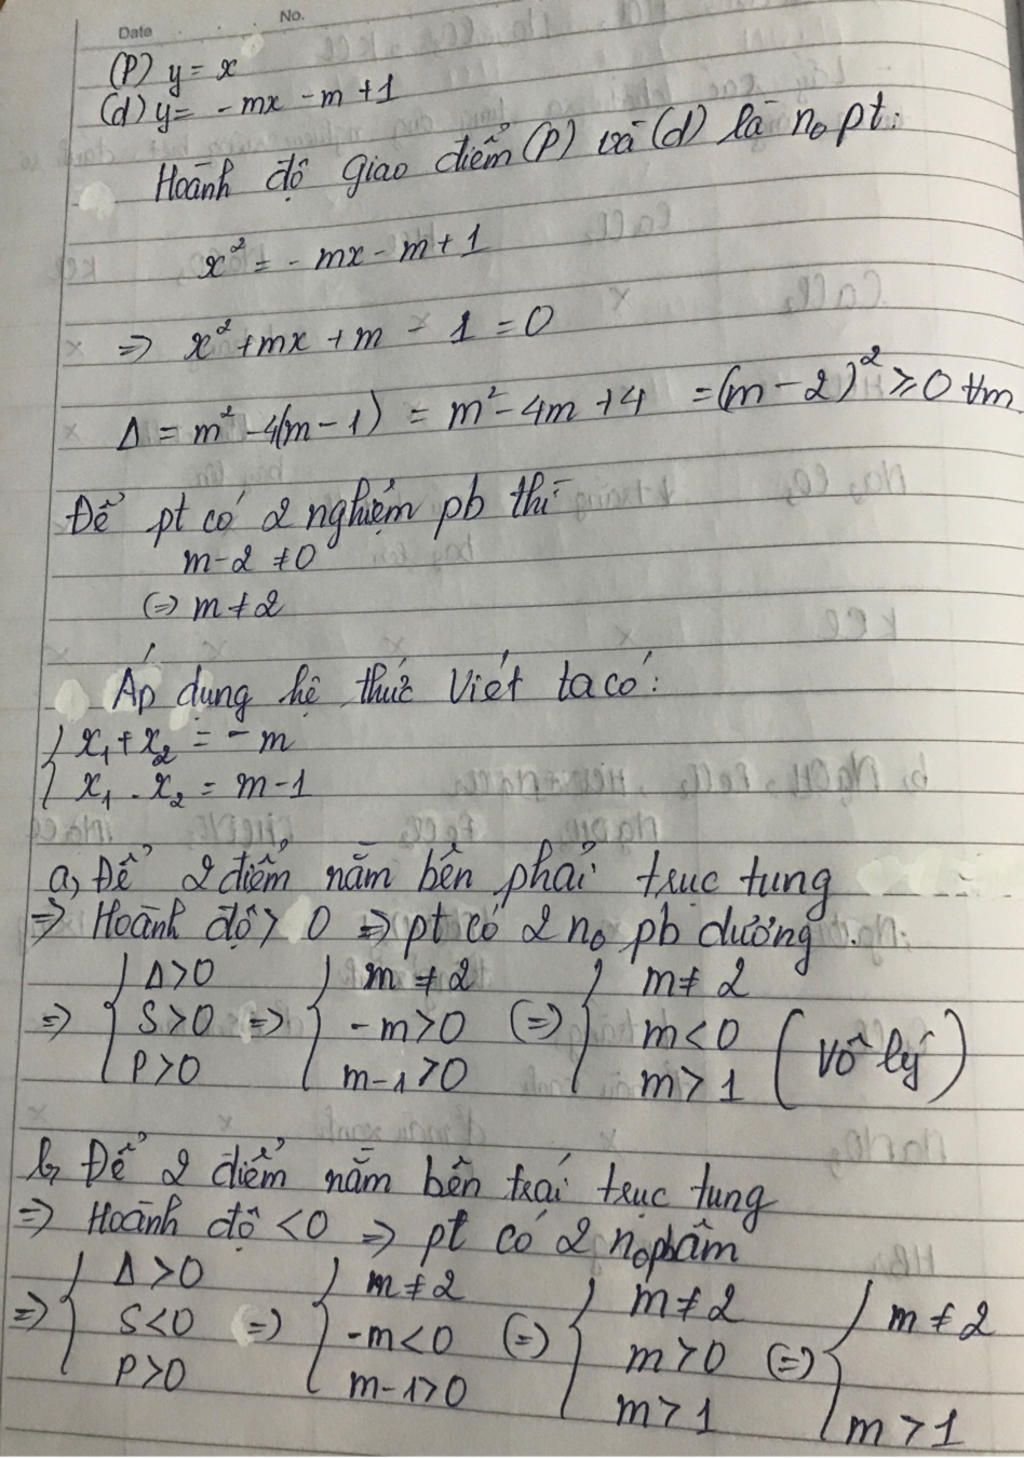 Date No.
(P) y = x
(d) y = -mx - m + 1
Hoành độ giao điểm (P) và (d) là nₒ pt:
x² = - mx - m + 1
=> x² + mx + m - 1 = 0
Δ = m² - 4(m - 1) = m² - 4m + 4 = (m - 2)² ≥ 0 ∀m
Để pt có 2 nghiệm pb thì
m - 2 ≠ 0
(=) m ≠ 2
Áp dụng hệ thức Viét ta có:
{ x₁ + x₂ = - m
{ x₁ . x₂ = m - 1
a, Để 2 điểm nằm bên phải trục tung
=> Hoành độ > 0 => pt có 2 nₒ pb dương.
=> { Δ > 0 => { m ≠ 2 (=) { m ≠ 2
S > 0 - m > 0 m < 0 (vô lý)
P > 0 m - 1 > 0 m > 1
b, Để 2 điểm nằm bên trái trục tung
=> Hoành độ < 0 => pt có 2 nₒ pb âm
=> { Δ > 0 => { m ≠ 2 (=) { m ≠ 2 (=) { m ≠ 2
S < 0 - m < 0 m > 0
P > 0 m - 1 > 0 m > 1 m > 1